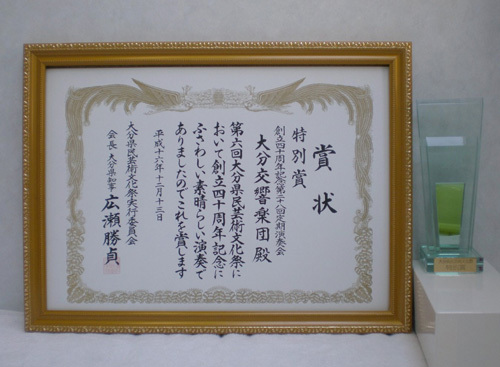 賞状
特別賞
創立四十周年記念第二十八回定期演奏会
大分交響楽団殿
第六回大分県民芸術文化祭に
おいて創立四十周年記念に
ふさわしい素晴らしい演奏で
ありましたのでこれを賞します
平成十六年十二月十三日
大分県民芸術文化祭実行委員会
会長 大分県知事 広瀬勝貞